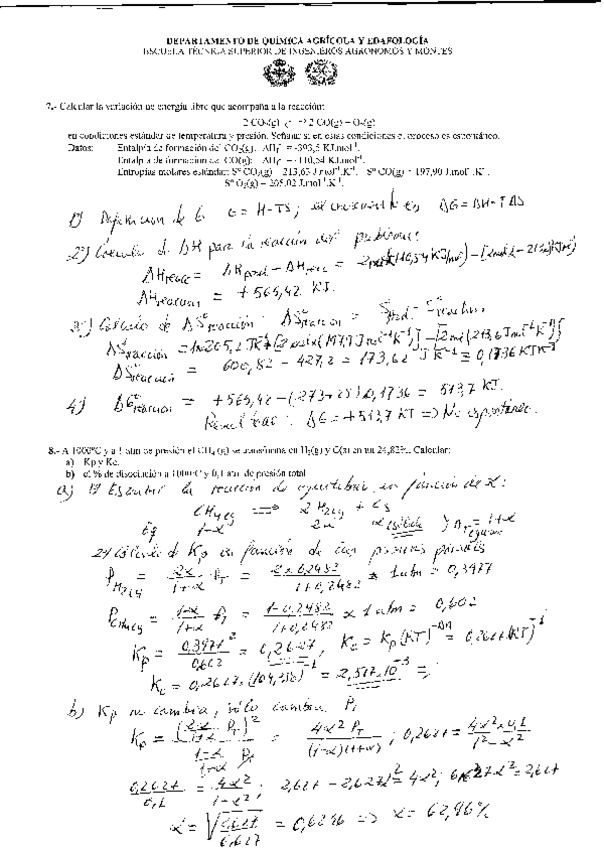 DEPARTAMENTO DE QUÍMICA AGRÍCOLA Y EDAFOLOGÍA
ESCUELA TÉCNICA SUPERIOR DE INGENIEROS AGRONOMOS Y MONTES
7.- Calcular la variación de energía libre que acompaña a la reacción:
2 CO₂(g) 2 CO(g) + O₂(g)
en condiciones estándar de temperatura y presión. Señalar si en estas condiciones el proceso es espontáneo.
Datos: Entalpía de formación del CO₂(g): = -393,5 KJ.mol⁻¹.
Entalpía de formación del CO(g): = -110,54 KJ.mol⁻¹.
Entropías molares estándar: Sº CO₂(g) = 213,63 J.mol⁻¹.K⁻¹. Sº CO(g) = 197,90 J.mol⁻¹.K⁻¹.
Sº O₂(g) = 205,02 J.mol⁻¹.K⁻¹.
1) Definicion de G G = H-TS; ΔG = ΔH-TΔS
2º) Cálculo de ΔH para la reacción del problema:
ΔHreacc = ΔHprod - ΔHreac =
ΔHreaccion = + 565,42 KJ.
3º) Cálculo de ΔSreacción: ΔSreaccion =
ΔSreacción =
ΔSreacción = 600,82 - 427,2 = 173,62 J K⁻¹ = 0,1736 KJK⁻¹
4) ΔGreaccion = + 565,42 - (273+25).0,1736 = 513,7 KJ.
Resultado: ΔG = + 513,7 KJ ⇒ No espontáneo.
8.- A 1000ºC y a 1 atm de presión el CH₄ (g) se transforma en H₂(g) y C(s) en un 24,82%. Calcular:
a) Kp y Kc.
b) el % de disociación a 1000ºC y 0,1 atm de presión total
a) 1º Escribir la reaccion de equilibrio en función de α:
CH₄(g) 2 H₂(g) + C(s)
Eq 1-α 2α α (sólido) = 1+α
2º) Cálculo de Kp en función de las presiones parciales
PH₂(g) = 2α/1+α . PT = 2×0,2482/1+0,2482 × 1 atm = 0,3977
PCH₄(g) = 1-α/1+α PT = 1-0,2482/1+0,2482 × 1 atm = 0,602
Kp = 0,3977²/0,602 = 0,2627, Kc = Kp (RT)
Kc = 0,2627. = 2,517.10⁻³
b) Kp no cambia, sólo cambia PT
Kp = (2α/1+α PT)²/1-α/1+α PT = 4α² PT/(1-α)(1+α); 0,2627 = 4α²×0,1/1²-α²
0,2627/0,1 = 4α²/1-α²; 2,627 - 2,627α² = 4α²; 6,627α² = 2,627
α = √2,627/6,627 = 0,6296 ⇒ α = 62,96%